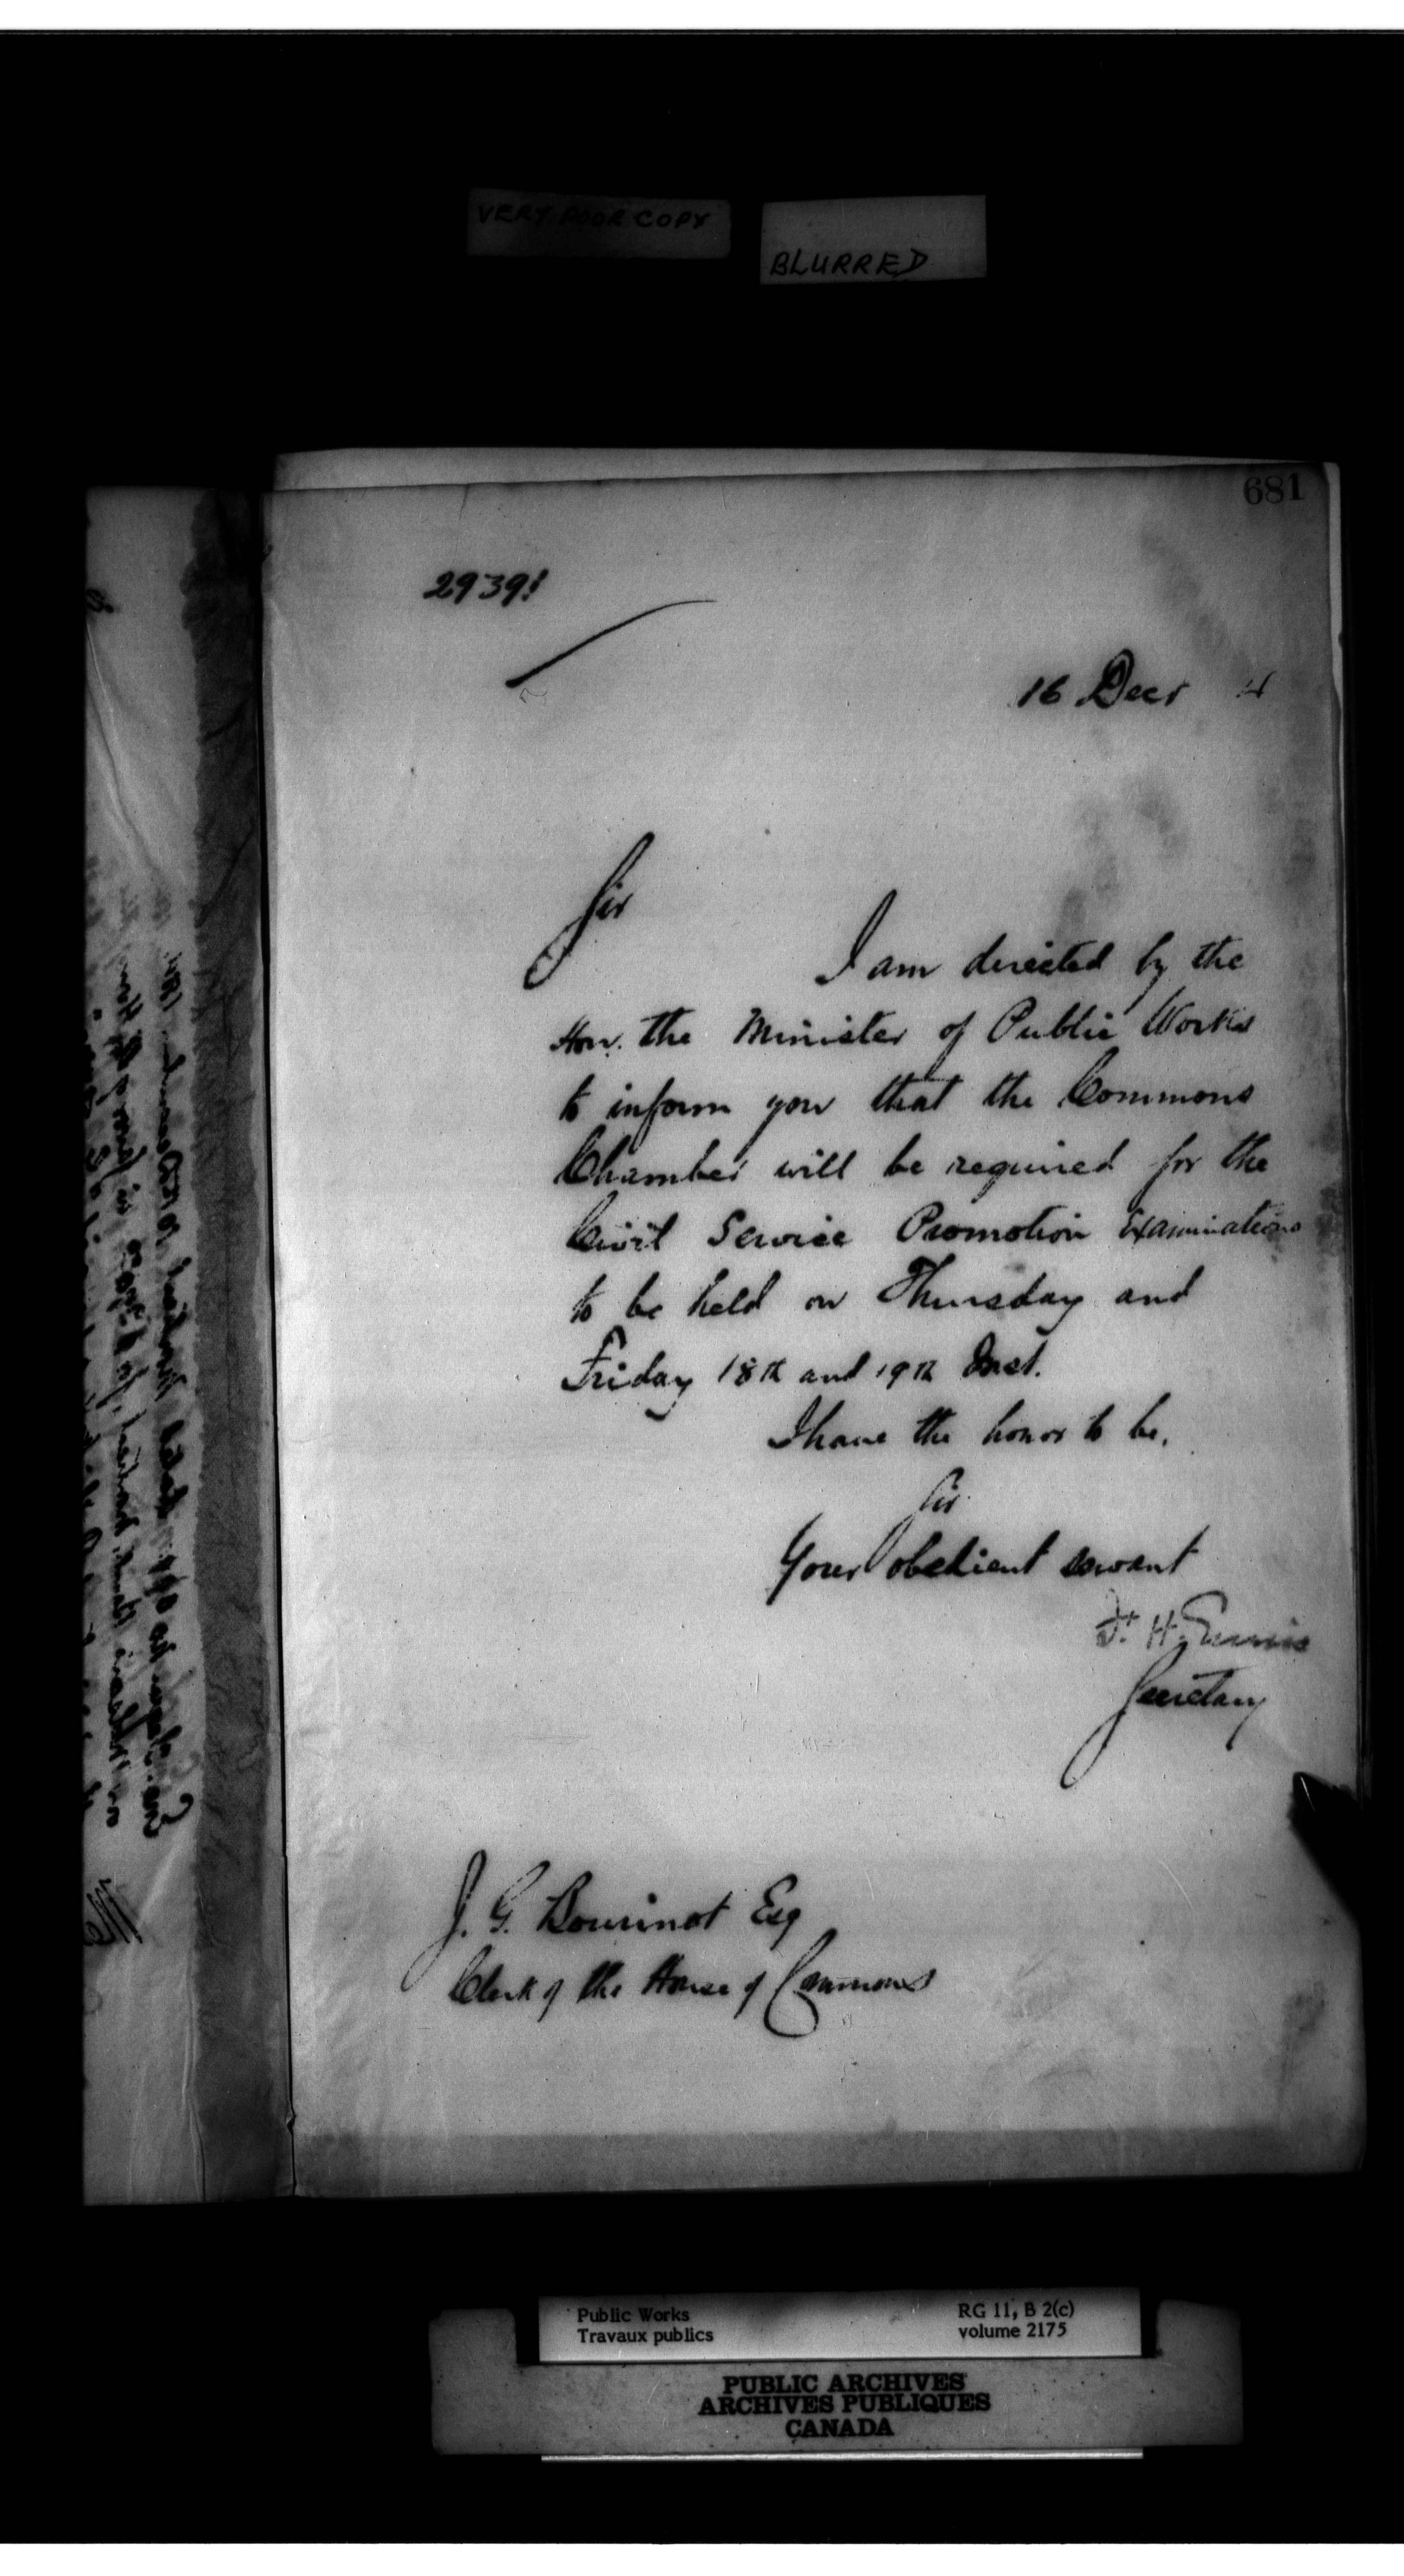 VERY POOR COPY
BLURRED
681
29391
16 Decr 4
Sir
I am directed by the
Hon. the Minister of Public Works
to inform you that the Commons
Chamber will be required for the
Civil Service Promotion Examinations
to be held on Thursday and
Friday 18th and 19th Inst.
I have the honor to be,
Sir
Your obedient servant
F. H. Ennis
Secretary
J. G. Bourinot Esq
Clerk of the House of Commons
Public Works
Travaux publics
RG 11, B 2(c)
volume 2175
PUBLIC ARCHIVES
ARCHIVES PUBLIQUES
CANADA